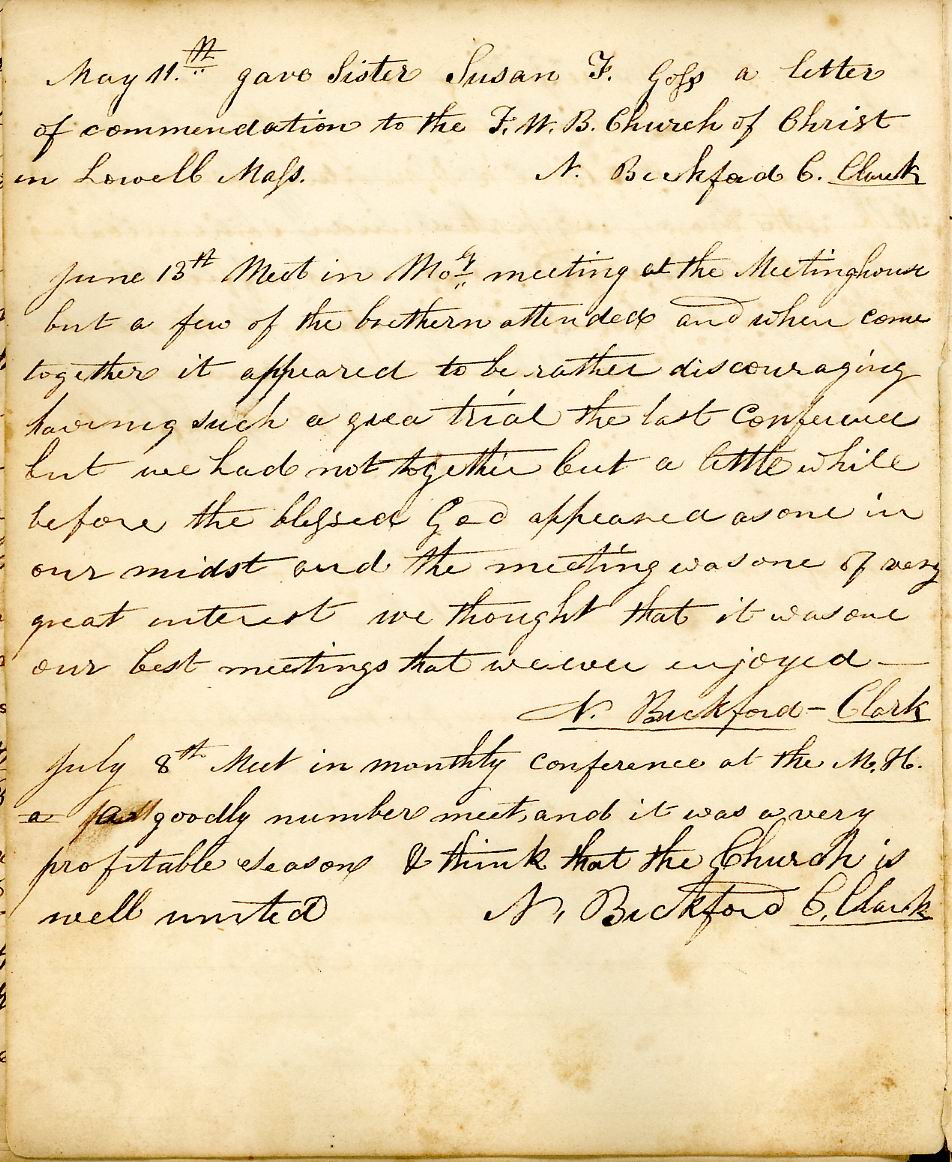 May 11.th gave Sister Susan F. Goss a letter
of commendation to the F. W. B. Church of Christ
in Lowell Mass. N. Bickford C. Clark
June 13th Meet in Moly meeting at the Meetinghouse
but a few of the brethern attended and when come
together it appeared to be rather discouraging
haveing such a grea trial the last Conference
but we had not together but a little while
before the blessed God appeared as one in
our midst and the meeting was one of very
great interest we thought that it was one
our best meetings that we ever enjoyed —
N. Bickford – Clark
July 8th Meet in monthly conference at the M. H.
a goodly number meet, and it was a very
profitable season & think that the Church is
well united N. Bickford C. Clark